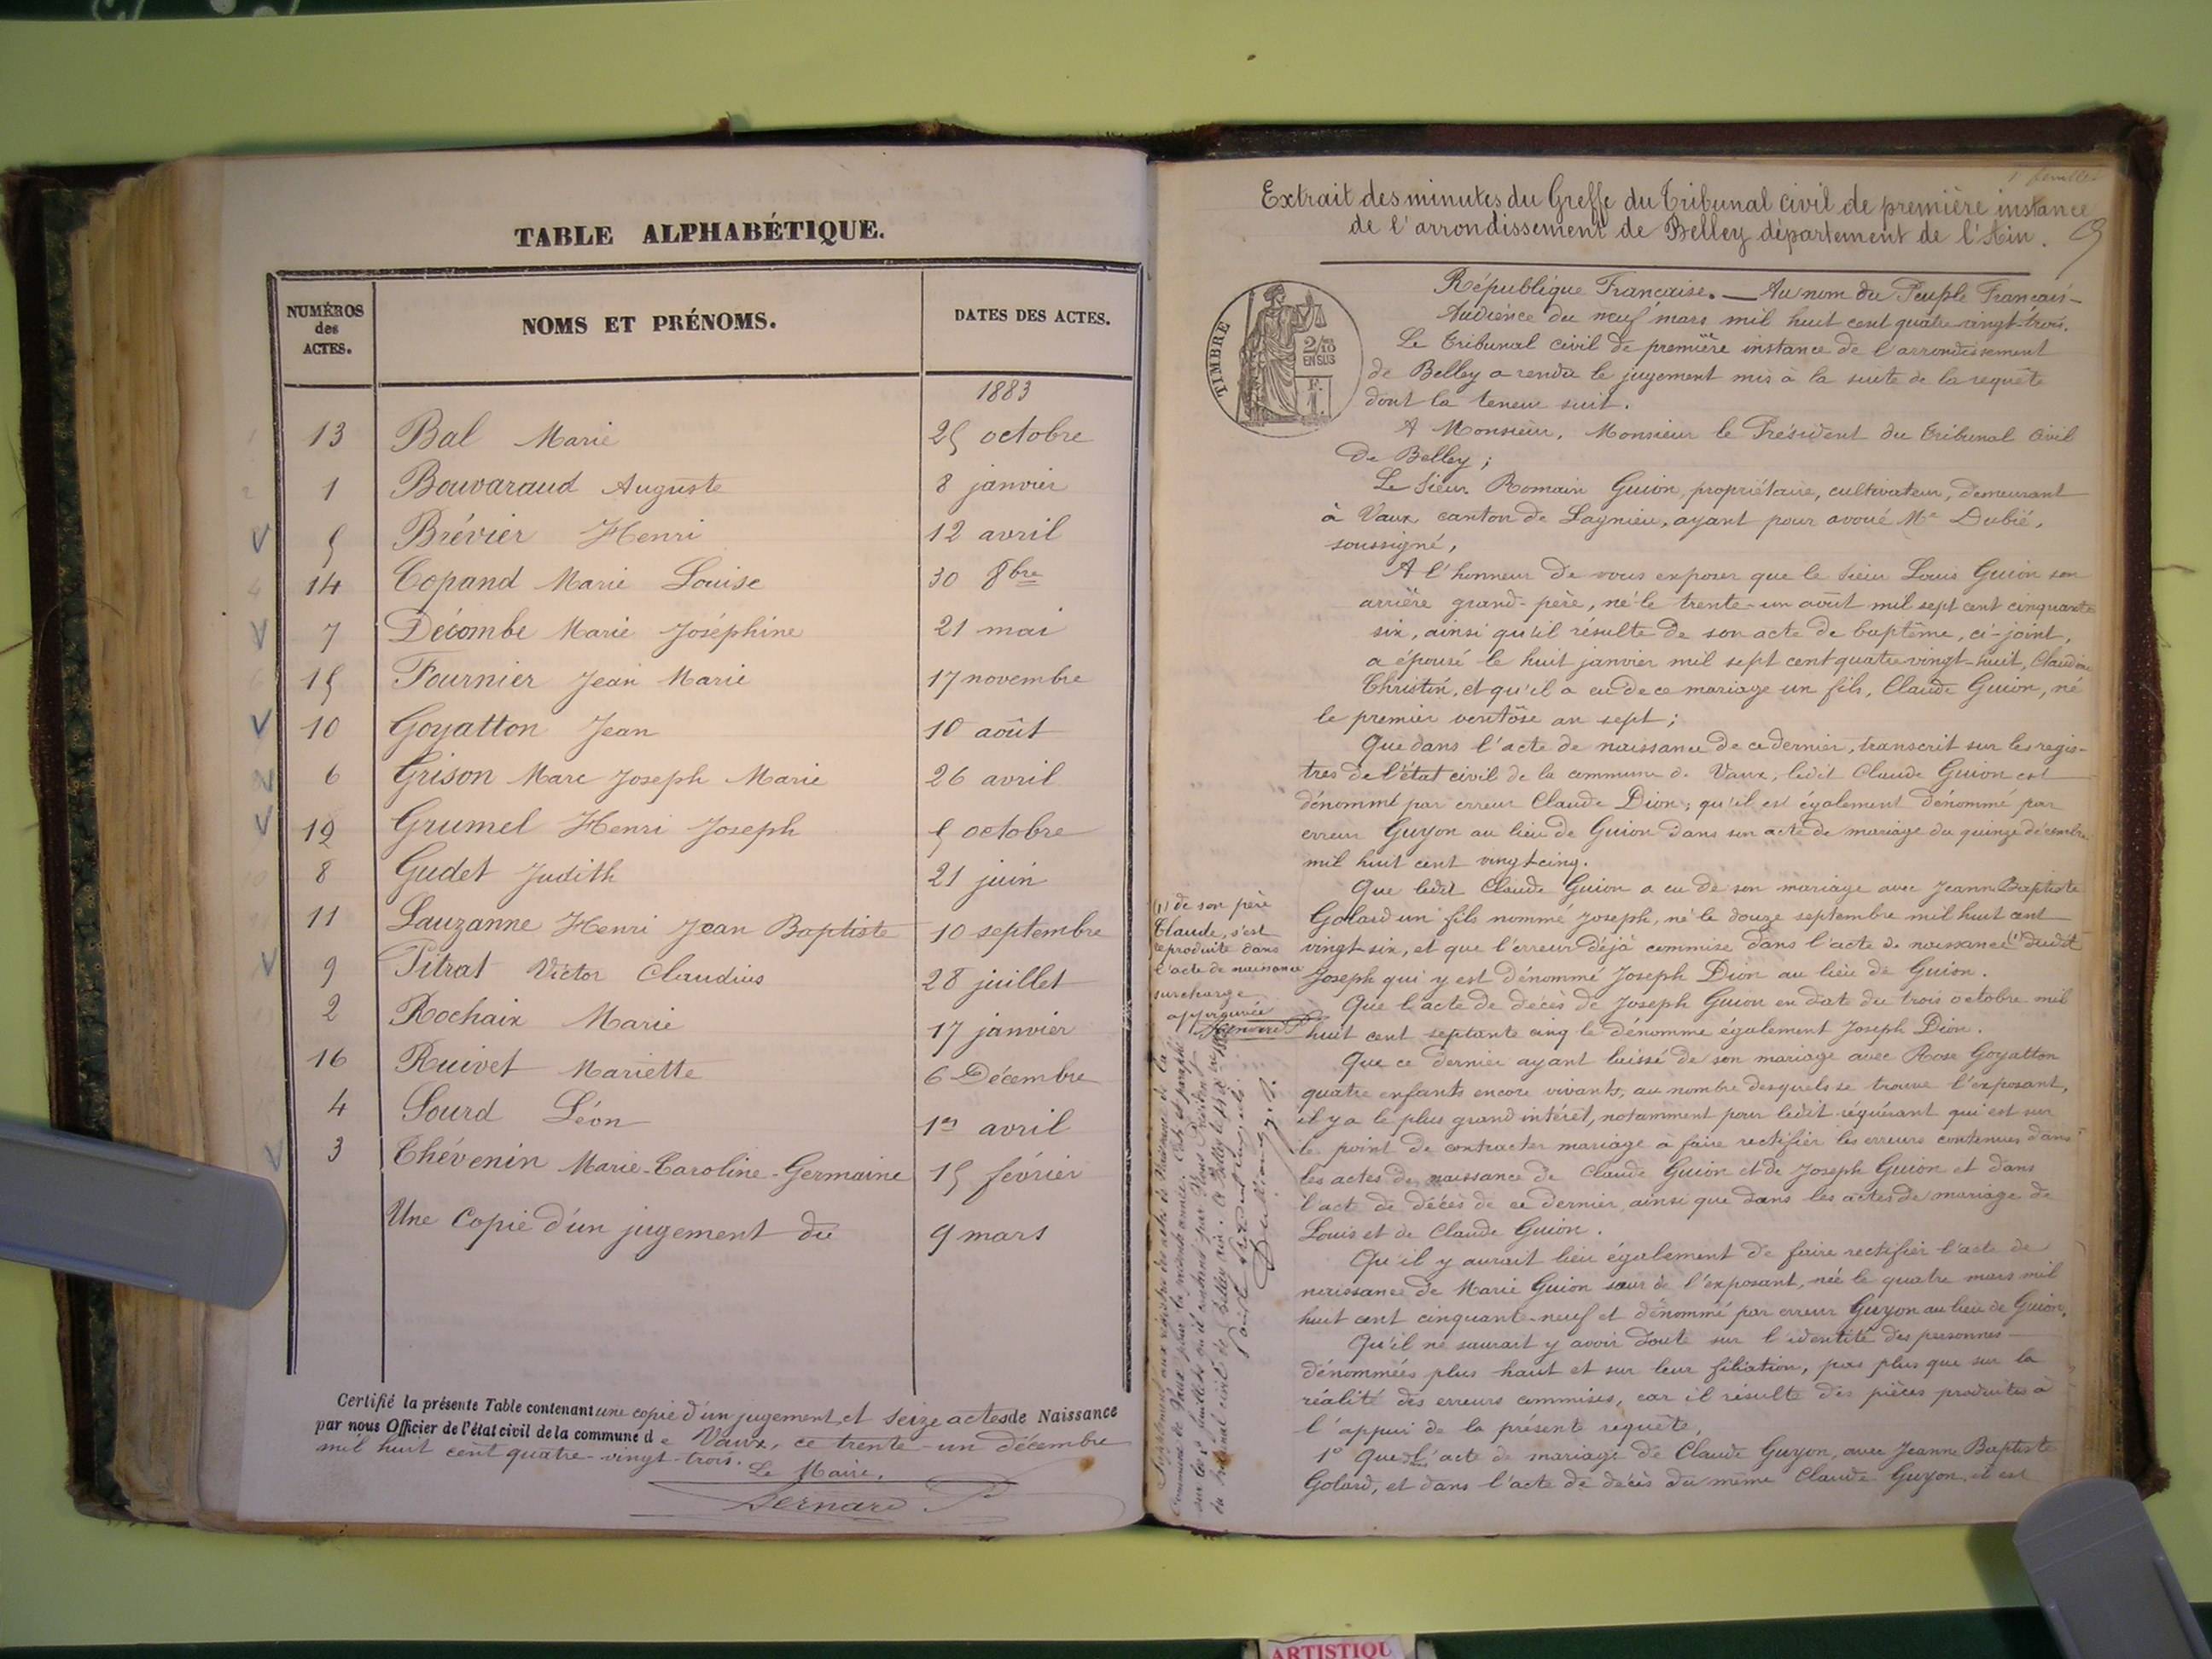 TABLE ALPHABÉTIQUE.
NUMÉROS des ACTES. NOMS ET PRÉNOMS. DATES DES ACTES.
1883
13 Bal Marie 25 octobre
1 Bouvaraud Auguste 8 janvier
5 Brévier Henri 12 avril
14 Copand Marie Louise 30 8bre
7 Décombe Marie Joséphine 21 mai
15 Fournier Jean Marie 17 novembre
10 Goyatton Jean 10 août
6 Grison Marc Joseph Marie 26 avril
12 Grumel Henri Joseph 5 octobre
8 Gudet Judith 21 juin
11 Lauzanne Henri Jean Baptiste 10 septembre
9 Pitrat Victor Claudius 28 juillet
2 Rochaix Marie 17 janvier
16 Ruivet Mariette 6 Décembre
4 Sourd Léon 1er avril
3 Thévenin Marie-Caroline-Germaine 15 février
Une Copie d'un jugement du 9 mars
Certifié la présente Table contenant une copie d'un jugement et seize actes de Naissance
par nous Officier de l'état civil de la commune de Vaux, ce trente-un décembre
mil huit cent quatre-vingt-trois.
Le Maire,
Bernard
Extrait des minutes du Greffe du Tribunal civil de première instance
de l'arrondissement de Belley département de l'Ain.
TIMBRE
2/10
EN SUS
République Française. — Au nom du Peuple Français —
Audience du neuf mars mil huit cent quatre-vingt-trois.
Le Tribunal civil de première instance de l'arrondissement
de Belley a rendu le jugement mis à la suite de la requête
dont la teneur suit.
A Monsieur, Monsieur le Président du Tribunal Civil
de Belley ;
Le Sieur Romain Guion, propriétaire, cultivateur, demeurant
à Vaux canton de Lagnieu, ayant pour avoué Me Dubié,
soussigné,
A l'honneur de vous exposer que le sieur Louis Guion son
arrière grand-père, né le trente-un août mil sept cent cinquante
six, ainsi qu'il résulte de son acte de baptême, ci-joint,
a épousé le huit janvier mil sept cent quatre-vingt-huit, Claudine
Christin, et qu'il a eu de ce mariage un fils, Claude Guion, né
le premier ventôse an sept ;
Que dans l'acte de naissance de ce dernier, transcrit sur les regis-
tres de l'état civil de la commune de Vaux, ledit Claude Guion est
dénommé par erreur Claude Dion ; qu'il est également dénommé par
erreur Guyon au lieu de Guion dans son acte de mariage du quinze décembre
mil huit cent vingt-cinq.
Que ledit Claude Guion a eu de son mariage avec Jeanne Baptiste
Golard un fils nommé Joseph, né le douze septembre mil huit cent
vingt-six, et que l'erreur déjà commise dans l'acte de naissance (1) dudit
Joseph qui y est dénommé Joseph Dion au lieu de Guion.
Que l'acte de décès de Joseph Guion en date du trois octobre mil
huit cent septante cinq le dénomme également Joseph Dion.
Que ce dernier ayant laissé de son mariage avec Rose Goyatton
quatre enfants encore vivants, au nombre desquels se trouve l'exposant,
il y a le plus grand intérêt, notamment pour ledit requérant qui est sur
le point de contracter mariage à faire rectifier les erreurs contenues dans
les actes de naissance de Claude Guion et de Joseph Guion et dans
l'acte de décès de ce dernier ainsi que dans les actes de mariage de
Louis et de Claude Guion.
Qu'il y aurait lieu également de faire rectifier l'acte de
naissance de Marie Guion sœur de l'exposant, née le quatre mars mil
huit cent cinquante-neuf et dénommé par erreur Guyon au lieu de Guion.
Qu'il ne saurait y avoir doute sur l'identité des personnes
dénommées plus haut et sur leur filiation, pas plus que sur la
réalité des erreurs commises, car il résulte des pièces produites à
l'appui de la présente requête,
1° Que l'acte de mariage de Claude Guyon, avec Jeanne Baptiste
Golard, et dans l'acte de décès du même Claude Guyon, il est
(1) de son père
Claude, s'est
reproduite dans
l'acte de naissance
surcharge
approuvée
ARTISTIQU